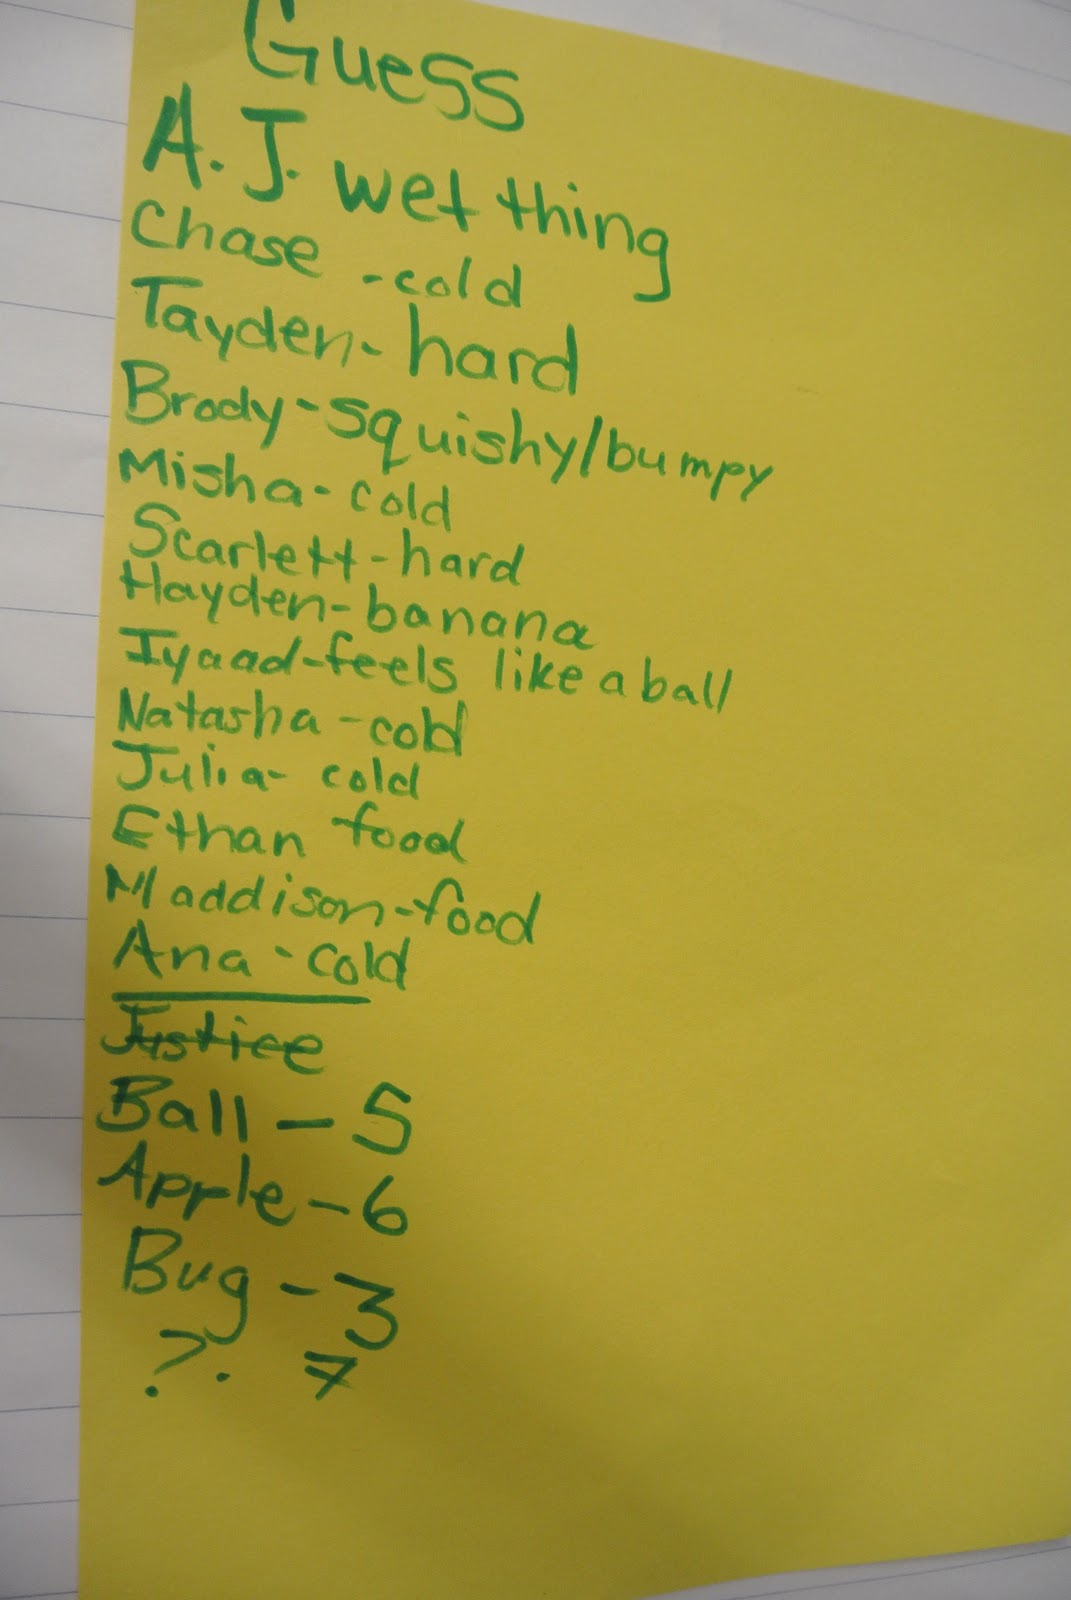 Guess
A.J. wet thing
Chase - cold
Tayden - hard
Brody - squishy/bumpy
Misha - cold
Scarlett - hard
Hayden - banana
Iyaad - feels like a ball
Natasha - cold
Julia - cold
Ethan food
Maddison - food
Ana - cold
Justice
Ball - 5
Apple - 6
Bug - 3
?. 7